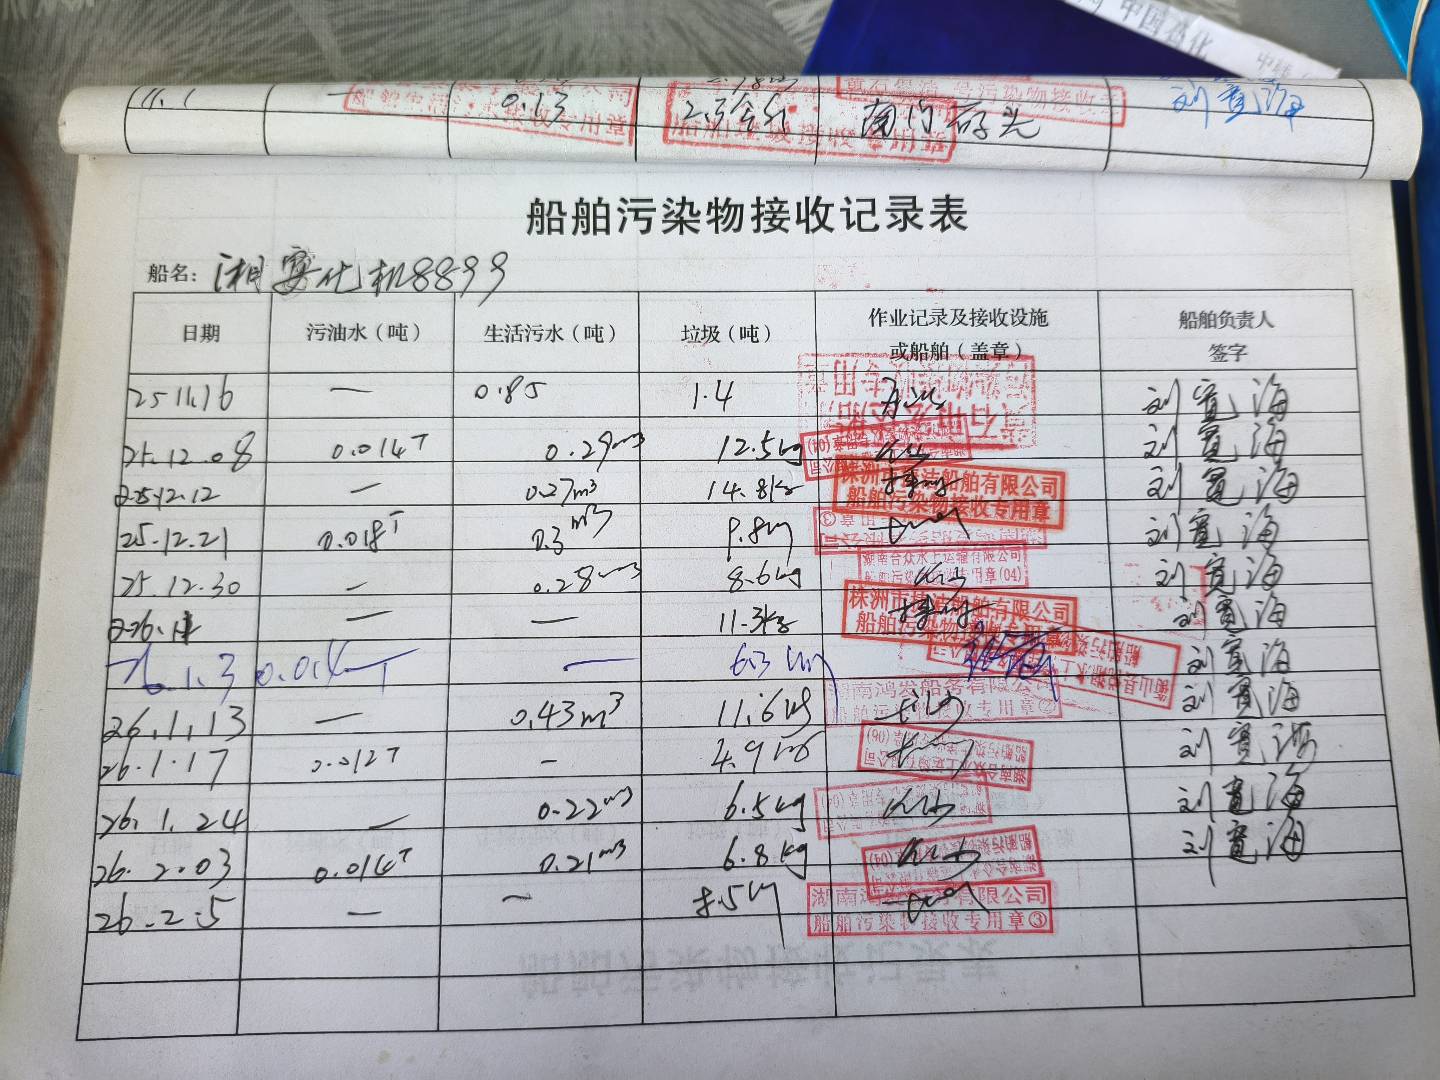 中国石化
11.1 — 0.13 2.5公斤 码头 刘寛海
船舶污染物接收记录表
船名：湘安化机8899
日期 污油水（吨） 生活污水（吨） 垃圾（吨） 作业记录及接收设施或船舶（盖章） 船舶负责人签字
25 11.16 — 0.85 1.4 刘寛海
25.12.08 0.014T 0.29m3 12.5kg 刘寛海
2025.12.12 — 0.27m3 14.8kg 刘寛海
株洲市捷洁船舶有限公司
船舶污染物接收专用章
25.12.21 0.018T 0.3m3 9.8kg 刘寛海
25.12.30 — 0.28m3 8.6kg 刘寛海
湖南台众水上运输有限公司
船舶污染物接收专用章(04)
— — 11.3kg 刘寛海
株洲市捷洁船舶有限公司
船舶污染物接收专用章
26.1.3 0.014T — 6.3kg 刘寛海
26.1.13 — 0.43m3 11.6kg 刘寛海
湖南鸿发船务有限公司
船舶污染物接收专用章②
26.1.17 0.012T — 4.9kg 刘寛海
26.1.24 — 0.22m3 6.5kg 刘寛海
26.2.03 0.014T 0.21m3 6.8kg 刘寛海
26.2.5 — — 8.5kg
湖南鸿发船务有限公司
船舶污染物接收专用章③